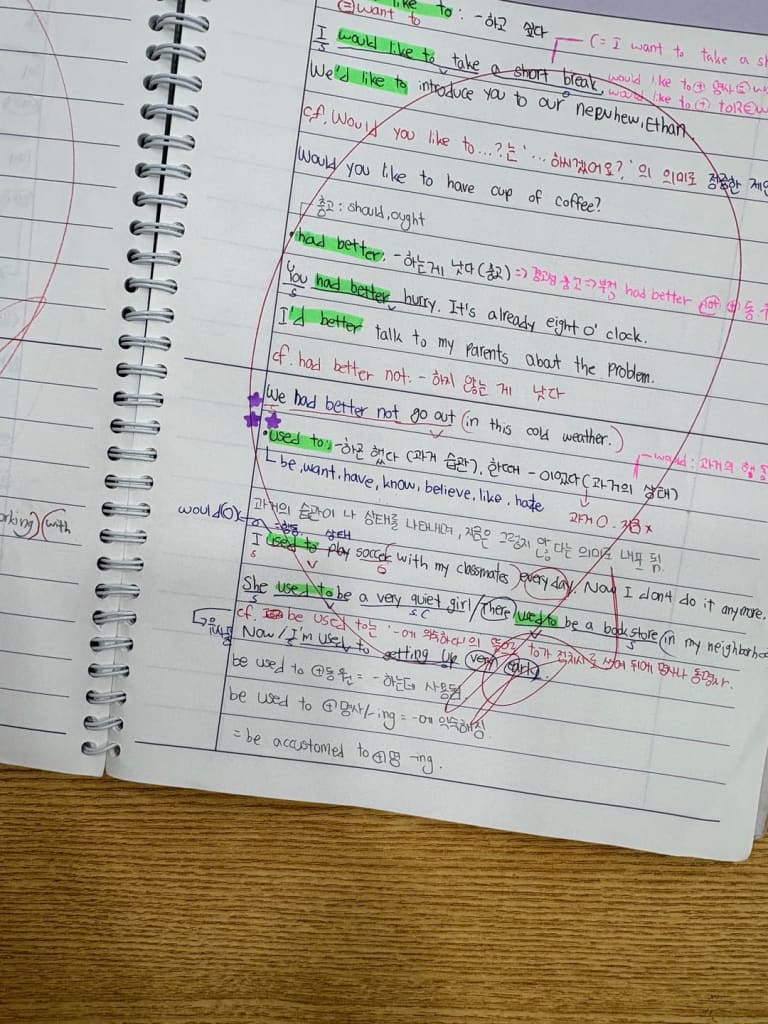 like to : -하고 싶다
(=)want to
(= I want to take a sh
I would like to take a short break.
would like to ⊕ 명사
would like to ⊕ to
We'd like to introduce you to our nepuhew, Ethan
cf. Would you like to...?는 '...하시겠어요?'의 의미로 정중한 제안
Would you like to have cup of coffee?
충고 : should, ought
•had better. -하는게 낫다(충고) ⇒ 경고성 충고 ⇒ 부정 had better not ⊕ 동.
You had better hurry. It's already eight o' clock.
I'd better talk to my parents abaut the problem.
cf. had better not. - 하지 않는 게 낫다
We had better not go out (in this cold weather.)
•used to: -하곤 했다 (과거 습관). 한때 - 이었다 (과거의 상태)
would : 과거의 행동
be, want, have, know, believe, like, hate
과거 O. 지금 x
would(O)
과거의 습관이 나 상태를 나타내며, 지금은 그렇지 않다는 의미로 내포 됨
행동 상태
orking) (with
I used to play soccer (with my classmates) every day. Now I don't do it anymore.
s o
She used to be a very quiet girl / There used to be a book store (in my neighborhoo
s s c s
cf. be used to는 '-에 익숙하다'의 뜻으로 to가 전치사로 쓰여 뒤에 명사나 동명사.
Now / I'm used to getting up very early.
be used to ⊕ 동원 = -하는데 사용됨
be used to ⊕ 명사/-ing = -에 익숙해짐
= be accustomed to ⊕ 명 -ing.